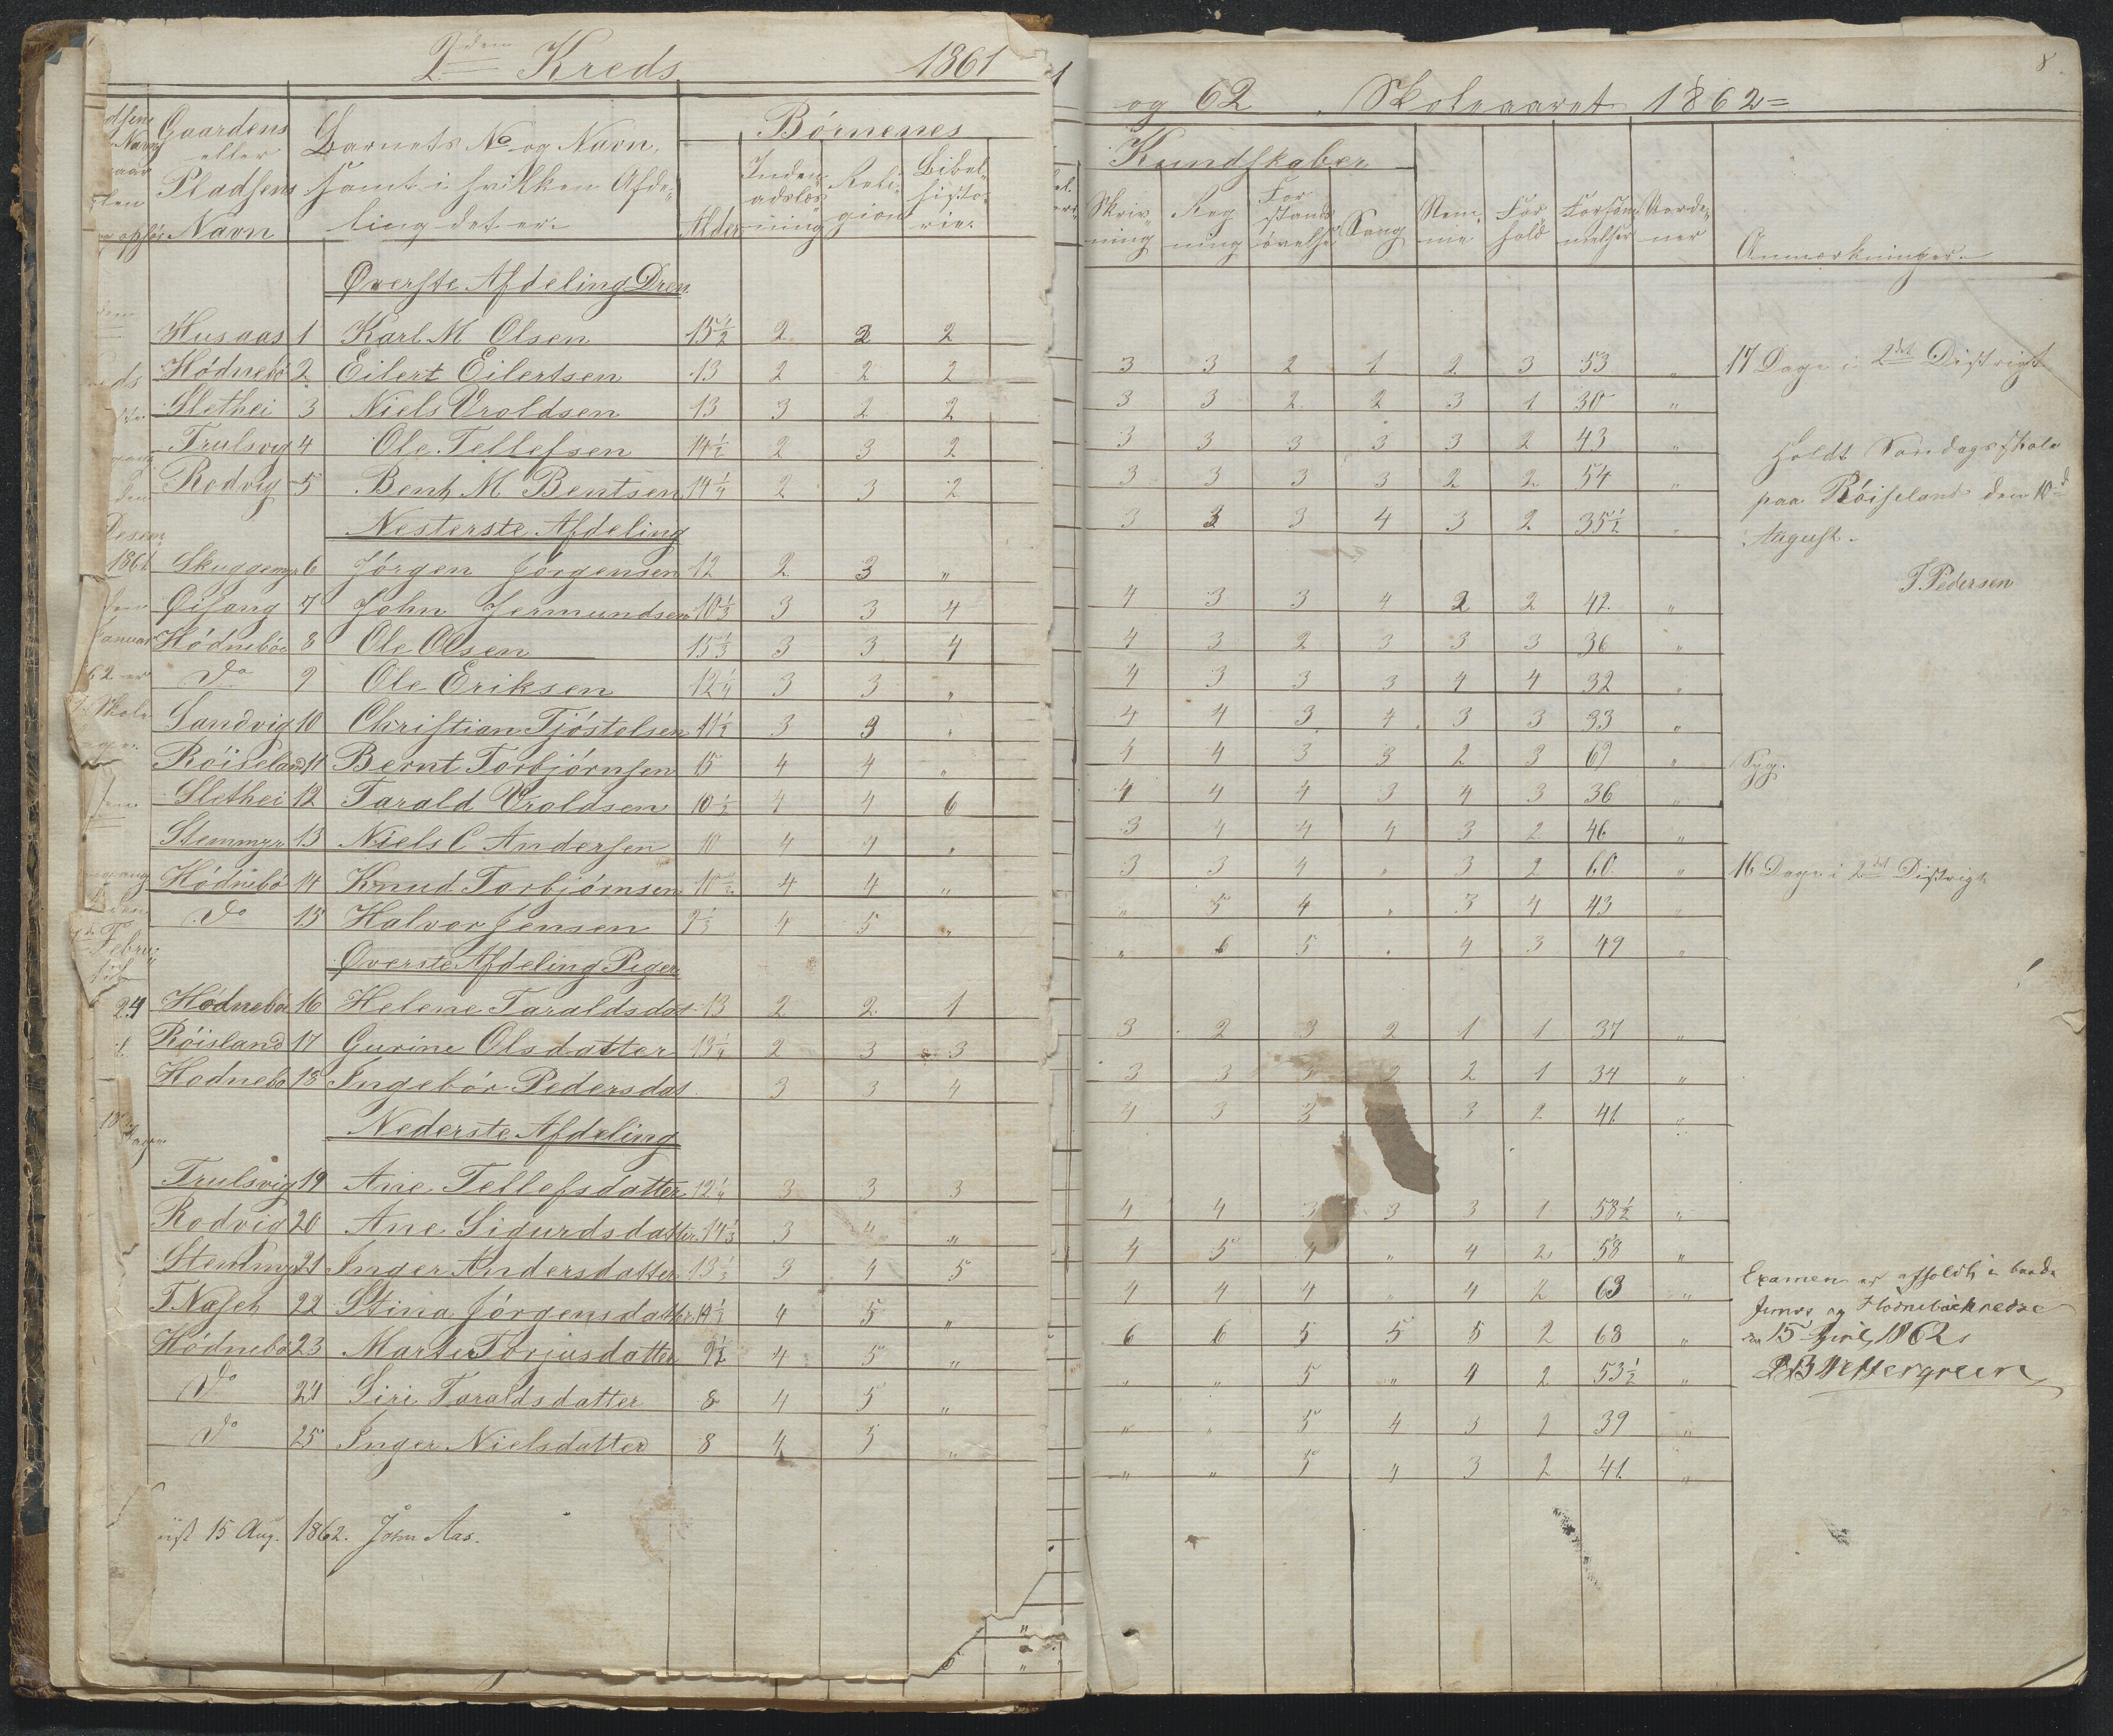 2den Kreds 1861
Gaardens eller Pladsens Navn
Barnets No og Navn, samt i hvilken Afdeling det er.
Alder
Børnenes
Indenadslæsning
Religion
Bibelhistorie.
Øverste Afdeling Dren
Husaas 1 Karl M Olsen 15½ 2 2 2
Hødnebø 2 Eilert Eilertsen 13 2 2 2
Slethei 3 Niels Vroldsen 13 3 2 2
Trulsvig 4 Ole Tellefsen 14½ 2 3 2
Rodvig 5 Bent M Bentsen 14¼ 2 3 2
Nesterste Afdeling
Skuggemyr 6 Jørgen Jørgensen 12 2 3 "
Øisang 7 John Jermundsen 10⅓ 3 3 4
Hødnebøe 8 Ole Olsen 15⅓ 3 3 4
Do 9 Ole Eriksen 12¼ 3 3 "
Sandvig 10 Christian Tjøstelsen 11½ 3 3 "
Røiseland 11 Bernt Torbjørnsen 15 4 4 "
Slethei 12 Tarald Vroldsen 10½ 4 4 6
Stemmyr 13 Niels C Andersen 10 4 4 "
Hødnebø 14 Knud Torbjørnsen 10½ 4 4 "
Do 15 Halvor Jensen 9⅓ 4 5 "
Øverste Afdeling Piger
Hødnebø 16 Helene Taraldsdat 13 2 2 1
Røisland 17 Gurine Olsdatter 13¼ 2 3 3
Hodnebø 18 Ingebør Pedersdat 3 3 4
Nederste Afdeling
Trulsvig 19 Ane Tellefsdatter 12¼ 3 3 3
Rodvig 20 Ane Sigurdsdatter 14⅓ 3 4 "
Stemmyr 21 Inger Andersdatter 13⅓ 3 4 5
TNæset 22 Stina Jørgensdatter 14½ 4 5 "
Hødnebø 23 Marte Torjusdatter 9½ 4 5 "
Do 24 Siri Taraldsdatter 8 4 5 "
Do 25 Inger Nielsdatter 8 4 5 "
15 Aug. 1862. John Aas.
8.
og 62 Skoleaaret 1862=
Kundskaber
Skrivning
Regning
Forstandsøvelse
Sang
Nemme
Forhold
Forsømmelser
Anmærkninger.
3 3 2 1 2 3 53 " 17 Dage i 2det Distrigt
3 3 2 2 3 1 30 "
3 3 3 3 3 2 43 "
3 3 3 3 2 2 54 "
3 3 3 4 3 2 35½ "
Holdt Søndagsskole
paa Røiseland den 10d
August.
T. Pedersen
4 3 3 4 2 2 42. "
4 3 2 3 3 3 36 "
4 3 3 3 4 4 32 "
4 4 3 4 3 3 33 "
4 4 3 3 2 3 69 " Syg.
4 4 4 3 4 3 36 "
3 4 4 4 3 2 46 "
3 3 4 " 3 2 60 " 16 Dage i 2det Distrigt
" 5 4 " 3 4 43 "
" 6 5 " 4 3 49 "
3 2 3 2 1 1 37 "
3 3 3 2 2 1 34 "
4 3 3 3 2 41 "
4 4 3 3 3 1 58½ "
4 5 4 " 4 2 58 "
4 4 4 " 4 2 63 "
6 6 5 5 5 2 68 "
" " 5 " 4 2 53½ "
" " 5 4 3 2 39 "
" " 5 4 3 2 41. "
Examen er afholdt i baade
og Hodnebøekredse
15 April 1862